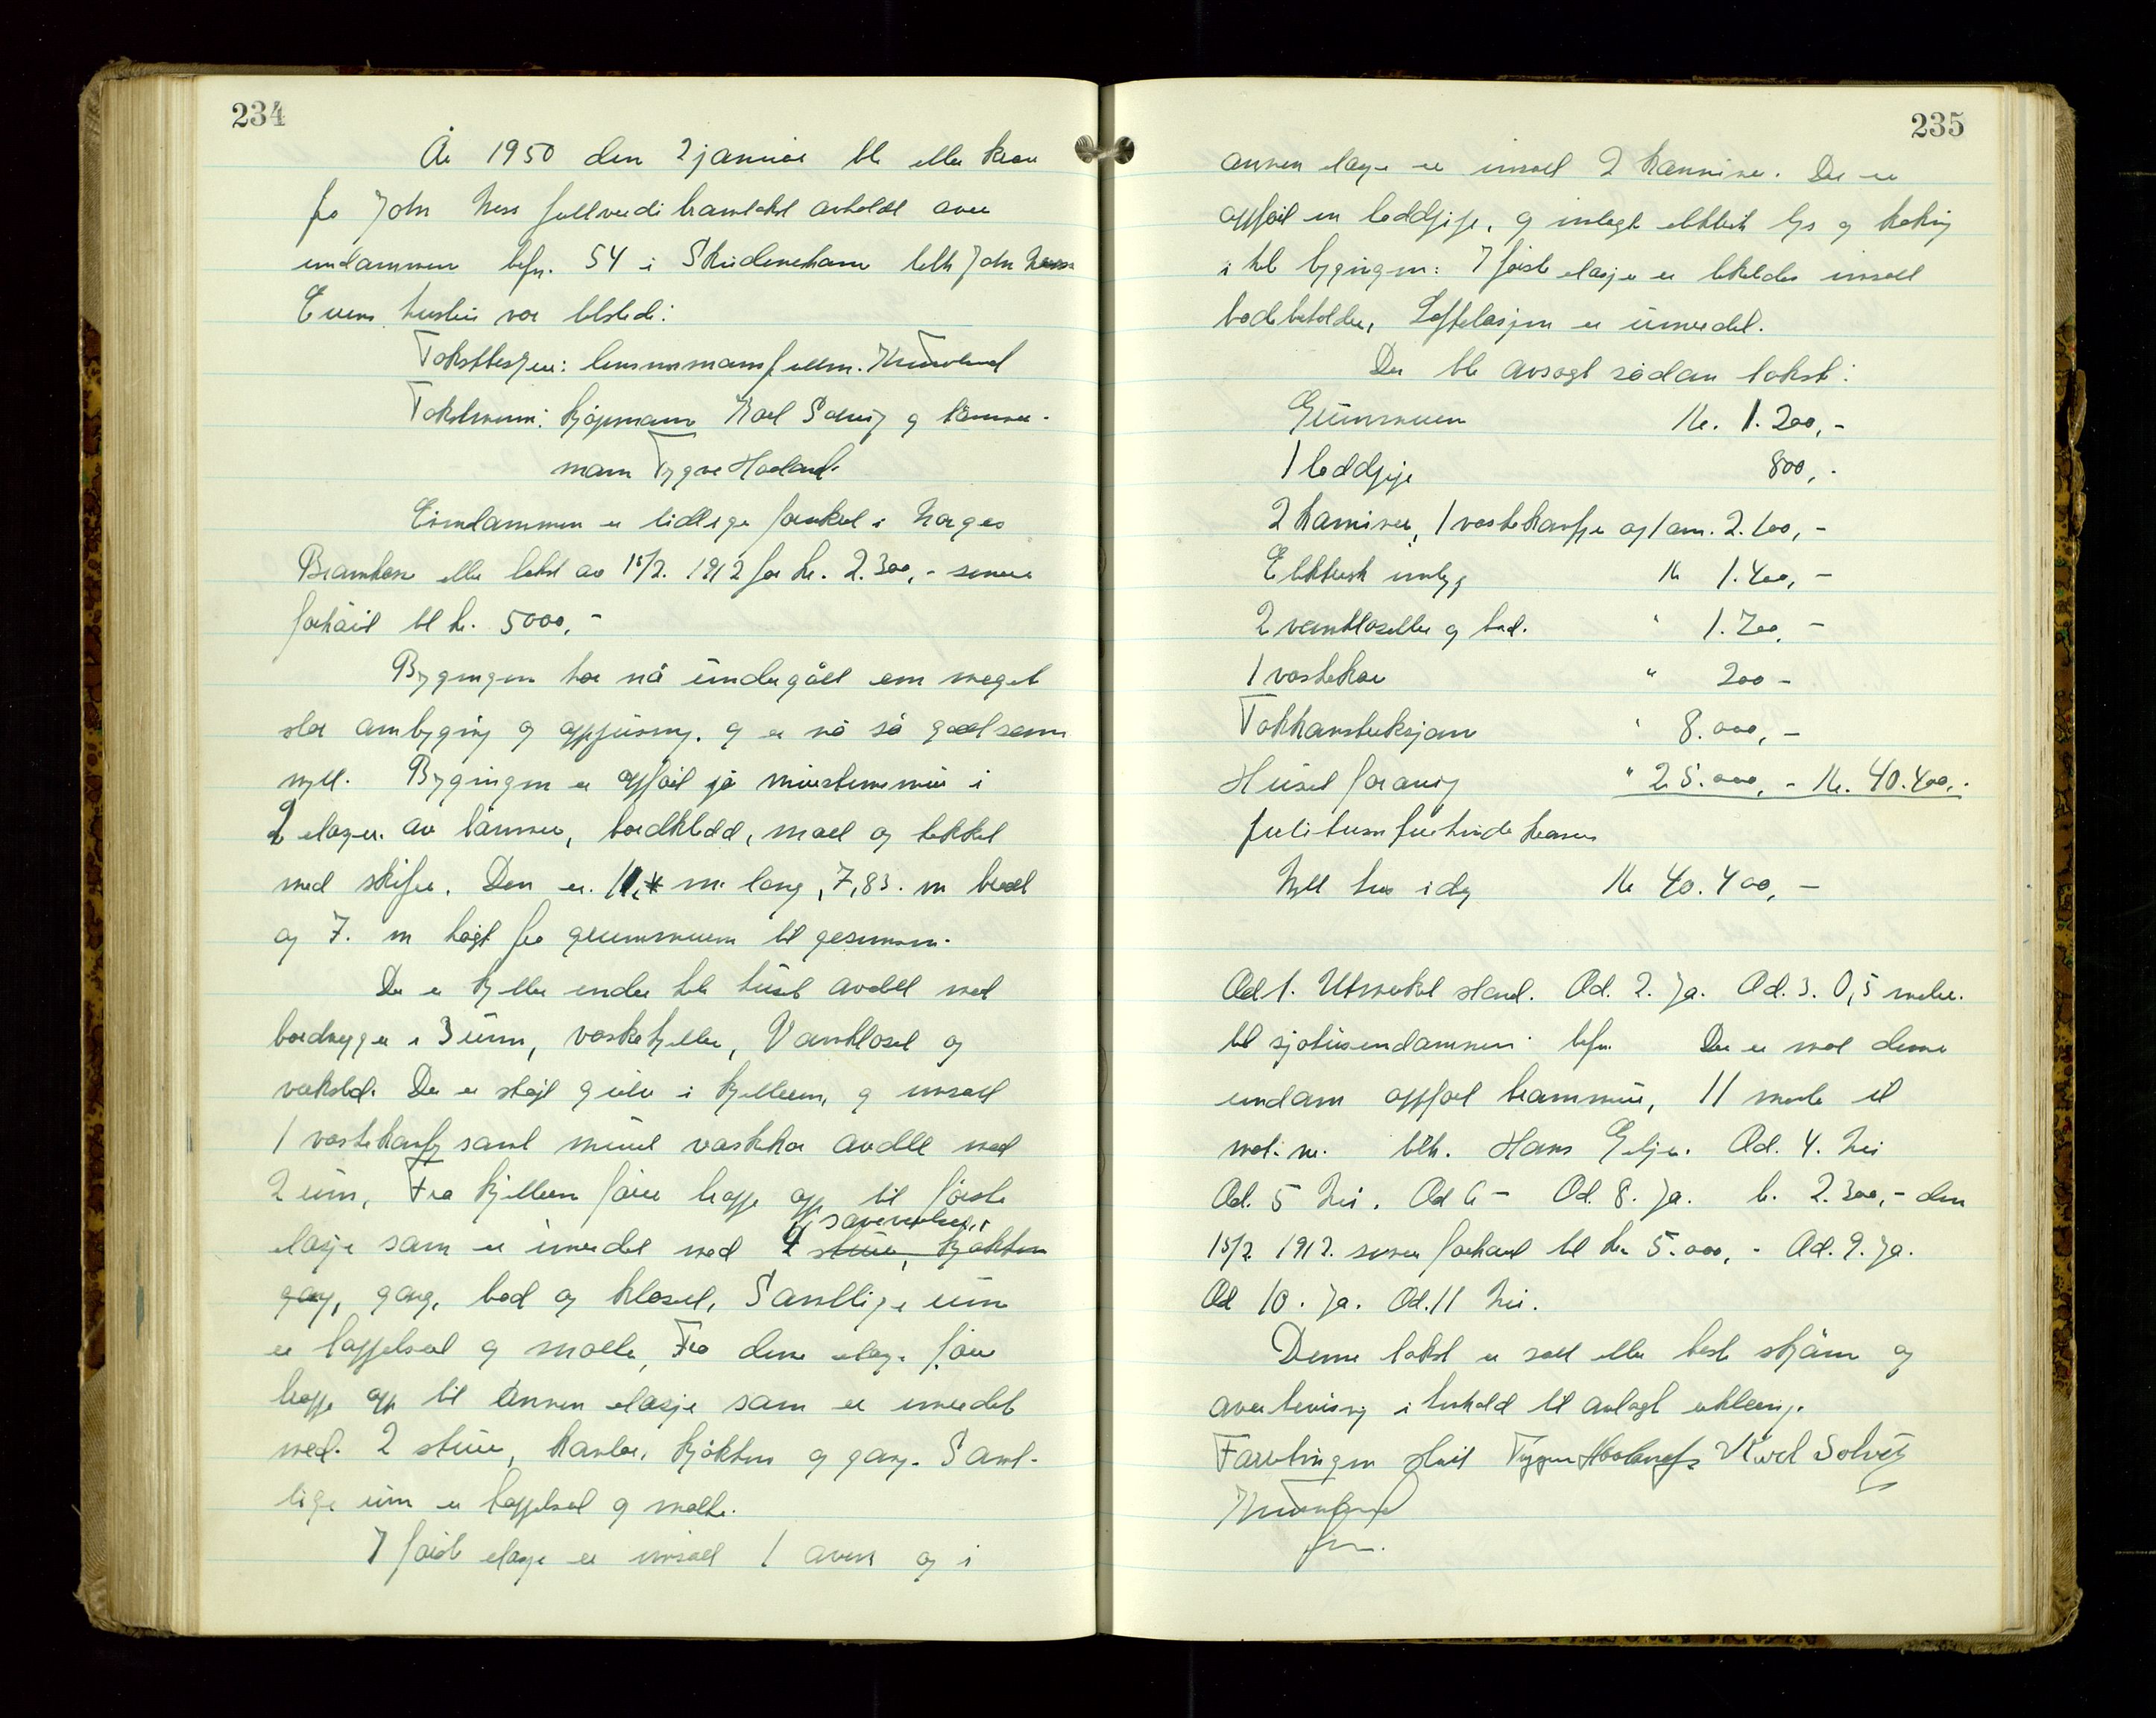 234
År 1950 den 2 januar ble etter krav
fra John Ness fullverdi branntakst avholdt over
eiendommen brfn. 54 i Skudeneshavn tilh John Ness
Eierens hustru var tilstede:
Takstbestyrer: lensmannsfullm.
Takstmenn: kjøpmann Karl Solvig og tømmer-
mann Trygve Hoeland.
Eiendommen er tidligere forsikret i Norges
Brannkasse etter takst av 15/2. 1912 for kr. 2.300,- senere
forhøiet til kr. 5000,-
Bygningen har nå undergått en meget
stor ombygning og oppussing. og er nå så godt som
nytt. Bygningen er opført på murstensmur i
2 etasjer. av tømmer, bordkledd, malt og tekket
med skifer. Den er. 11, m. lang, 7,83. m bred
og 7. m høgt fra grunnmuren til gesimsen.
Der er kjeller under hele huset avdelt med
bordvegger i 3 rum, vaskekjeller, Vannklosett og
verksted. Der er støpt gulv i kjelleren, og innsatt
1 vaskekomfyr samt muret vaskekar avdelt med
2 rum, Fra kjelleren fører trapp opp til første
soveværelser,
etasje som er innredet med 4 stuer, kjøkken
gang, gang, bad og klosett, Samtlige rum
er trappelert og malte, Fra denne etasje fører
trapp opp til annen etasje som er innredet
med. 2 stuer, kontor, kjøkken og gang. Samt-
lige rum er og malte.
I første etasje er innsatt 1 oven og i
235
annen etasje er innsatt 2 kaminer. Der er
oppført en teddpipe, og innlagt elektrisk lys og koking
i hele bygningen: I første etasje er likeledes innsatt
badebeholder, Loftetasjen er innredet.
Der ble avsagt sådan takst:
Grunnmuren Kr. 1.200,-
1 teddpipe 800,-
2 kaminer, 1 vaskekomfyr og 1 ovn. 2.100,-
Elektrisk innlegg Kr 1.400,-
2 vannklosetter og bad. " 1.700,-
1 vaskekar " 200 -
Takkonstruksjon " 8.000,-
Huset forøvrig " 25.000,- Kr. 40.400,-
førtitusenfirehundrekroner
Nytt hus i dag Kr 40.400,-
Ad 1. Utmerket stand. Ad. 2. Ja. Ad. 3. 0,5 meter.
til sjøhuseiendommen brfn. Der er mot denne
eiendom oppført brannmur, 11 meter til
matr. nr. tilh. Hans Gilje. Ad. 4. Nei
Ad. 5 Nei. Ad 6 - Ad. 8. Ja. kr. 2.300,- den
15/2 1912. senere forhøiet til kr 5.000,- Ad. 9. Ja.
Ad 10. Ja. Ad. 11 Nei.
Denne takst er satt etter beste skjønn og
overbevisning i henhold til avlagt erklæring.
Forretningen sluttet Trygve Hoeland Karl Solvig
fm.